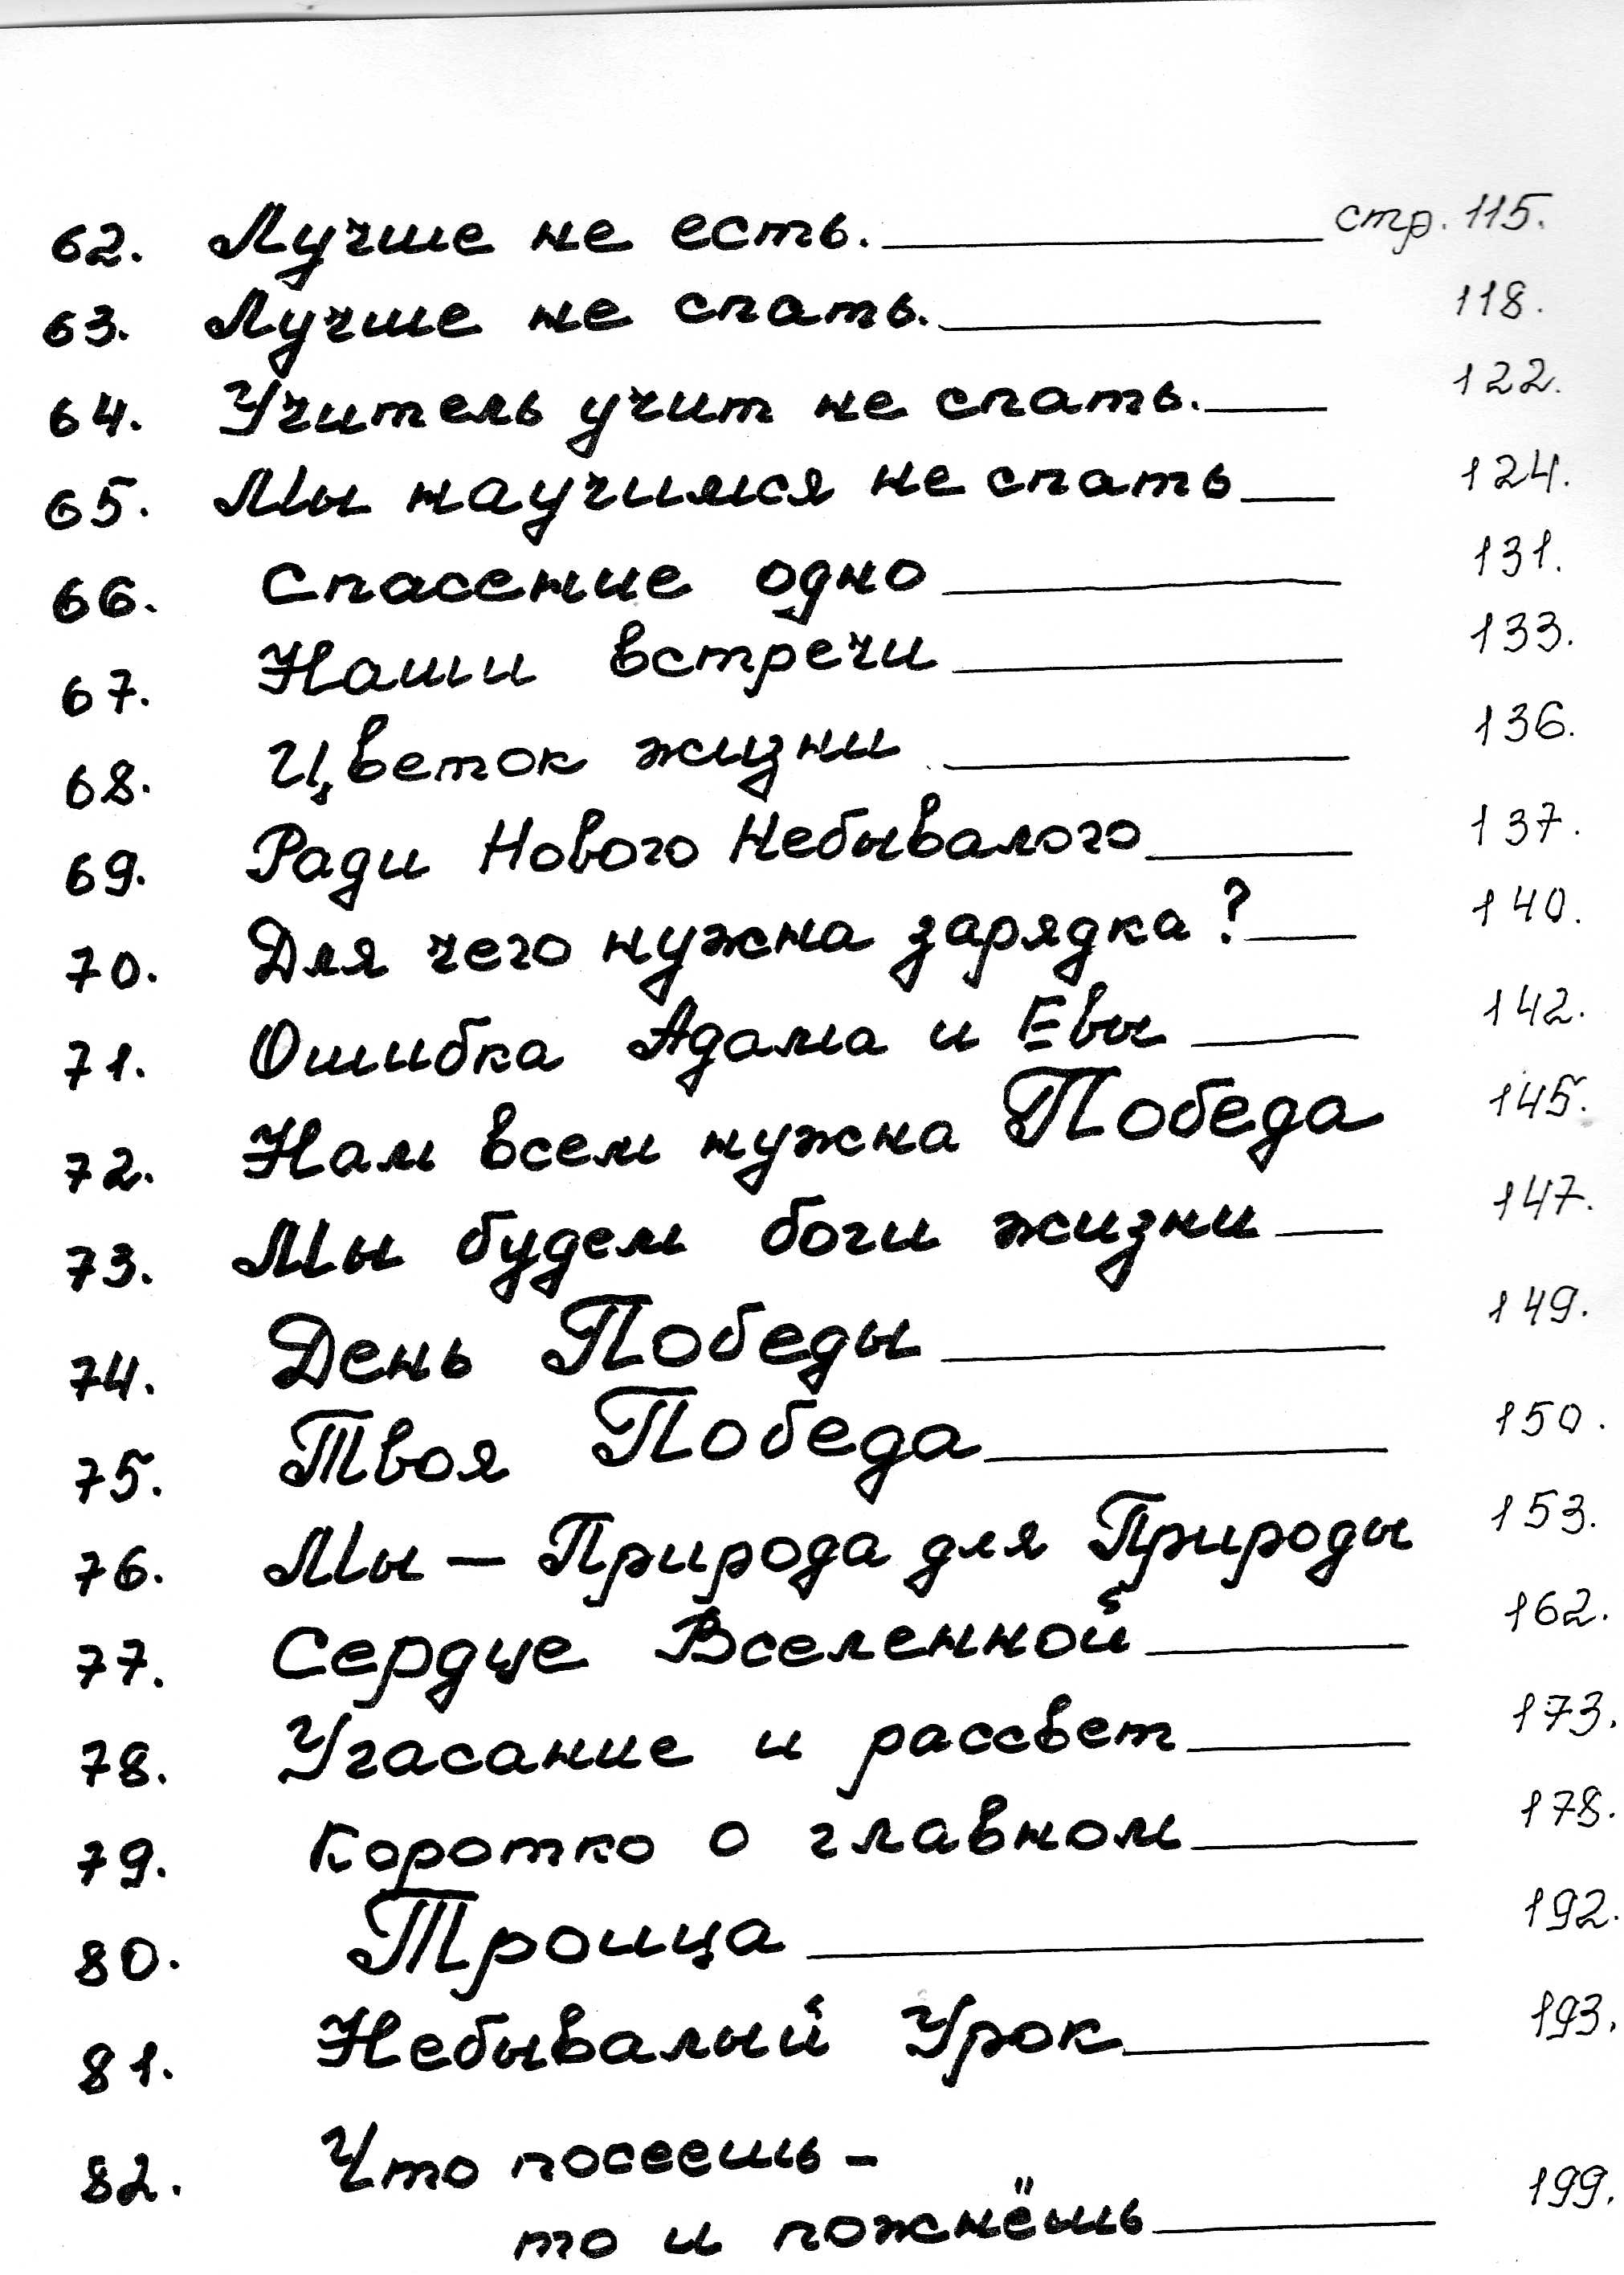 62. Лучше не есть. стр. 115.
63. Лучше не спать. 118.
64. Учитель учит не спать. 122.
65. Мы научимся не спать 124.
66. Спасение одно 131.
67. Наши встречи 133.
68. Цветок жизни 136.
69. Ради Нового Небывалого 137.
70. Для чего нужна зарядка? 140.
71. Ошибка Адама и Евы 142.
72. Нам всем нужна Победа 145.
73. Мы будем боги жизни 147.
74. День Победы 149.
75. Твоя Победа 150.
76. Мы – Природа для Природы 153.
77. Сердце Вселенной 162.
78. Угасание и рассвет 173.
79. Коротко о главном 178.
80. Троица 192.
81. Небывалый Урок 193.
82. Что посеешь -
то и пожнёшь 199.